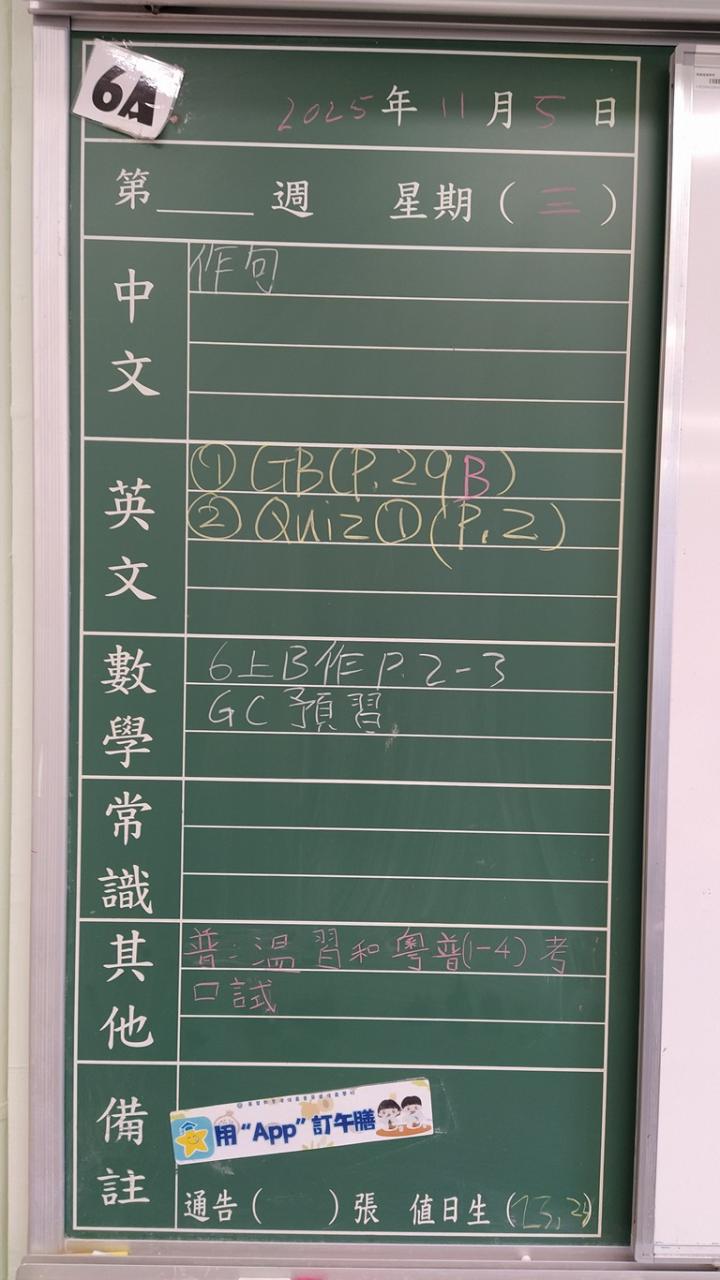 6A
2025年11月5日
第____週 星期(三)
中文
作句
英文
①GB(P.29B)
②Quiz①(P.2)
數學
6上B作P.2-3
GC預習
常識
其他
普:溫習和粵普(1-4)考
口試
備註
用"App"訂午膳
通告( )張 值日生(23,